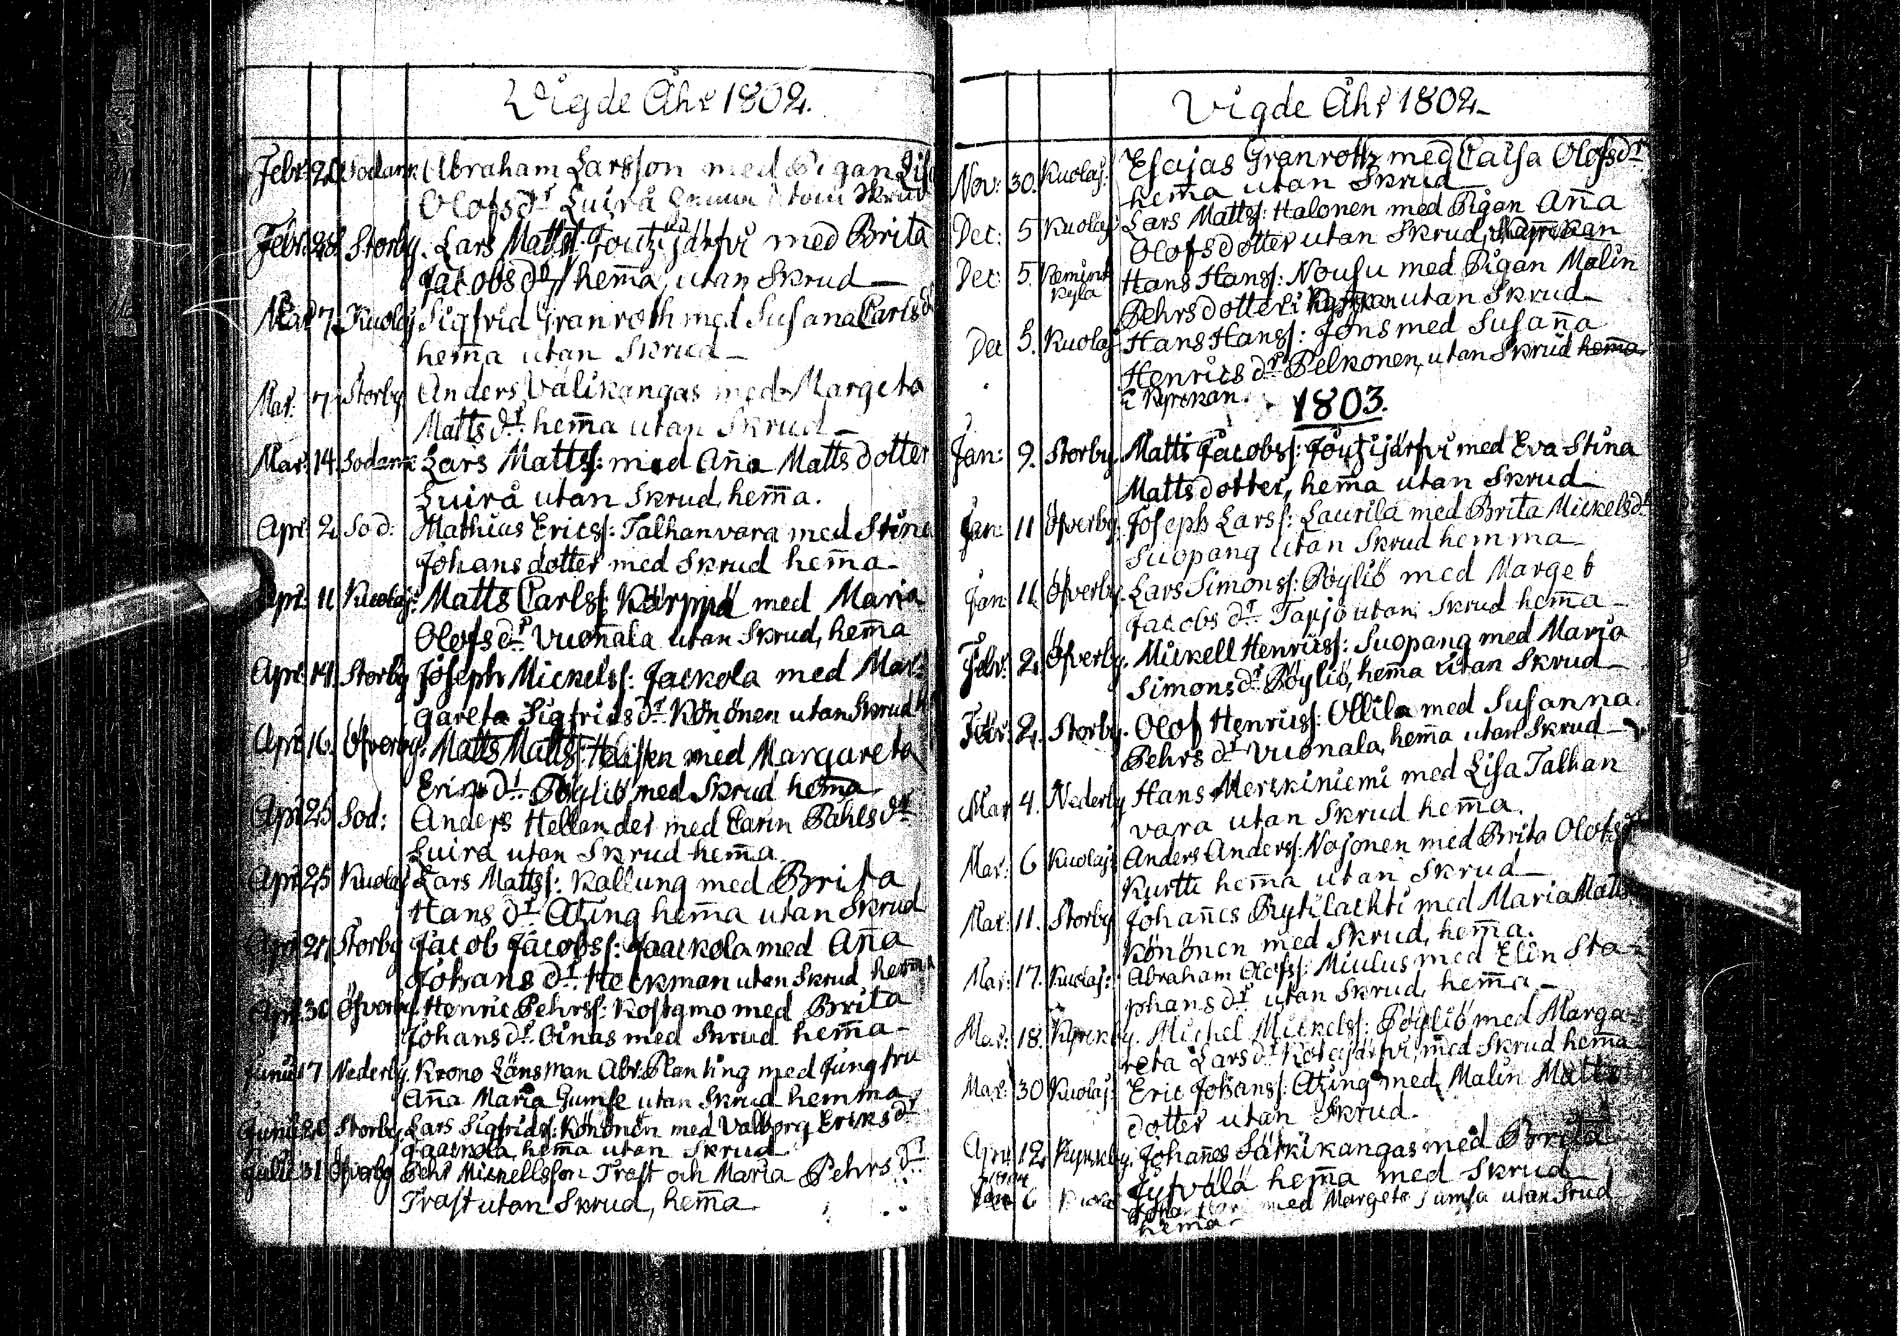 Vigde Åhr 1802.
Febr: 20 Sodank Abraham Larsson med Pigan Lisa
Olofsdr. Luirå utom Skrud
Febr: 28. Storby. Lars Mattss: Joutzijärfvi med Brita
Jacobsdr. hem̄a, utan Skrud
Mar: 7. Kuolaj Sigfrid Granroth med Susana Carlsdr
hem̄a utan Skrud
Mar: 7. Storby Anders Välikangas med Margeta
Mattsdr. hem̄a utan Skrud
Mar: 14. Sodank Lars Mattss: med An̄a Matts dotter
Luirå utan Skrud, hem̄a.
Apr: 2. Sod: Mathias Ericss: Talhanvara med Stina
Johans dotter med Skrud hem̄a
Apr: 11 Kuolaj: Matts Carlss: Kärppä med Maria
Olofsdr. Vuon̄ala utan Skrud, hem̄a
Apr: 14. Storby Joseph Mickelss: Jackola med Mar:
gareta Sigfridsdr. Könönen utan Skrud
Apr: 16. Öfverby. Matts Mattss: Halisen med Margareta
Ericsdr. Pöyliö med Skrud hem̄a
Apr: 25 Sod: Anders Hellander med Carin Påhlsdr
Luirå utan Skrud hem̄a
Apr: 25 Kuolaj Lars Mattss: Kallung med Brita
Hansdr. Atzing hem̄a utan Skrud
Apr: Storby Jacob Jacobss: Jaackola med An̄a
Johansdr. Heckman utan Skrud hem̄a
Apr: 30 Öfverby. Henric Pehrss: Kostamo med Brita
Johansdr. Oinas med Skrud hem̄a
Junii 17 Nederby. Krono Länsman Abr: Planting med Jungfru
An̄a Maria Gumse utan Skrud hemma
Junii Storby. Lars Sigfridss: Könönen med Valborg Eriksdr
Jaackola, hem̄a utan Skrud
Julii 31 Öfverby Pehr Mickellsson Trast och Maria Pehrsdr.
Trast utan Skrud, hem̄a
Vigde Åhr 1802
Nov: 30. Kuolaj: Esajas Granroth med Caisa Olofsdr
hem̄a utan Skrud
Dec: 5 Kuolaj Lars Mattss: Halonen med Pigan An̄a
Olofsdotter utan Skrud,
Dec: 5. Kemi Hans Hanss: Nousu med Pigan Malin
kyla Pehrsdotter i utan Skrud
Dec 5. Kuolaj Hans Hanss: Jons med Susan̄a
Henricsdr. Pelkonen, utan Skrud hem̄a
i Kyrckan.
1803.
Jan: 9. Storby Matts Jacobss: Joutzijärfvi med Eva Stina
Mattsdotter, hem̄a utan Skrud
Jan: 11 Öfverby. Joseph Larss: Laurila med Brita Mickelsdr
Suopang utan Skrud hemma
Jan: 11 Öfverby. Lars Simonss: Pöyliö med Marget
Jacobsdr. Tarjo utan Skrud hem̄a
Febr: 2. Öfverby. Mickell Henricss: Suopang med Maria
Simonsdr. Pöyliö, hem̄a utan Skrud
Febr: 2. Storby. Olof Henricss: Ollila med Susanna
Pehrsdr. Vuonala, hem̄a utan Skrud
Mar 4. Nederby Hans Merskiniemi med Lisa Talhan
vara utan Skrud hem̄a.
Mar: 6 Kuolaj: Anders Anderss: Nojonen med Brita Olofsdr
Kurtti hem̄a utan Skrud
Mar: 11. Storby Johan̄es Pytilachti med Maria Matts
Könönen med Skrud, hem̄a.
Mar: 17. Kuolaj: Abraham Olofss: Miulus med Elin Sta-
phansdr utan Skrud, hem̄a
Mar: 18. Kyrckby. Michel Mickelss: Pöyliö med Marga-
reta Larsdr. med Skrud hem̄a
Mar: 30 Kuolaj: Eric Johanss: Atzing med Malin Matts
dotter utan Skrud.
Apr: 12. Kyrckby. Johan̄es Särkikangas med Brita
Jyfvälä hem̄a med Skrud
6 med Margeta Jumsa utan Srud
hem̄a